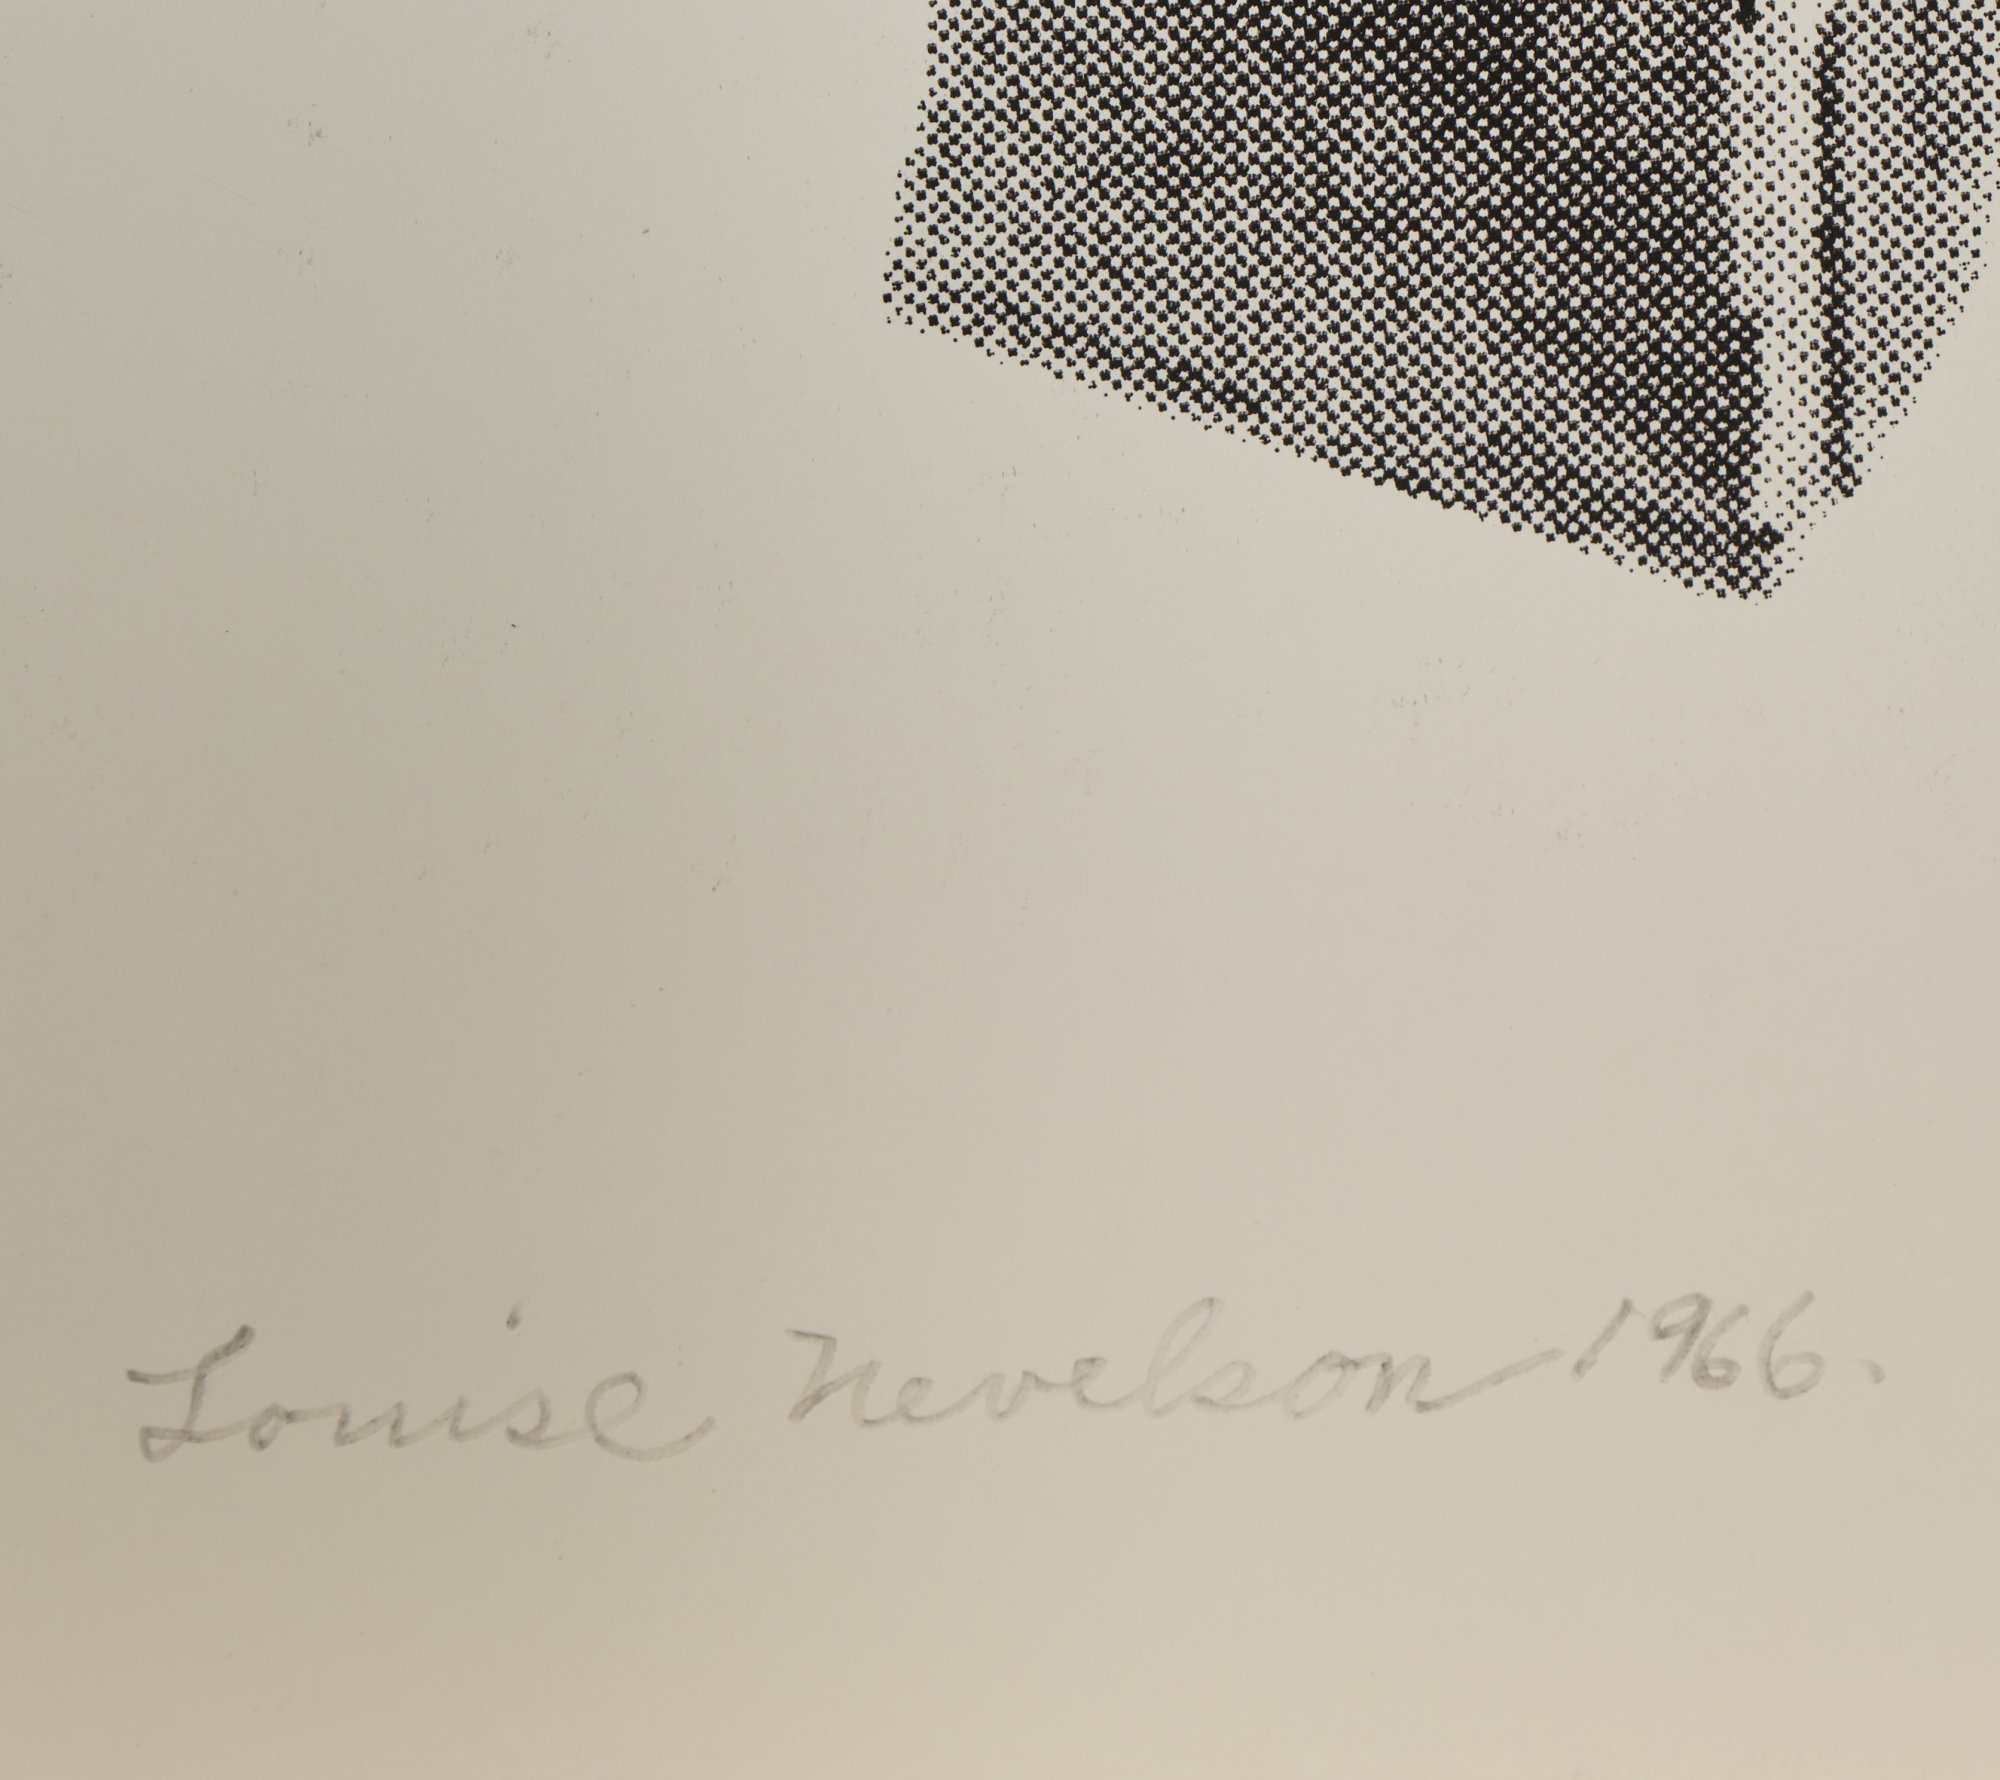 Louise Nevelson 1966.